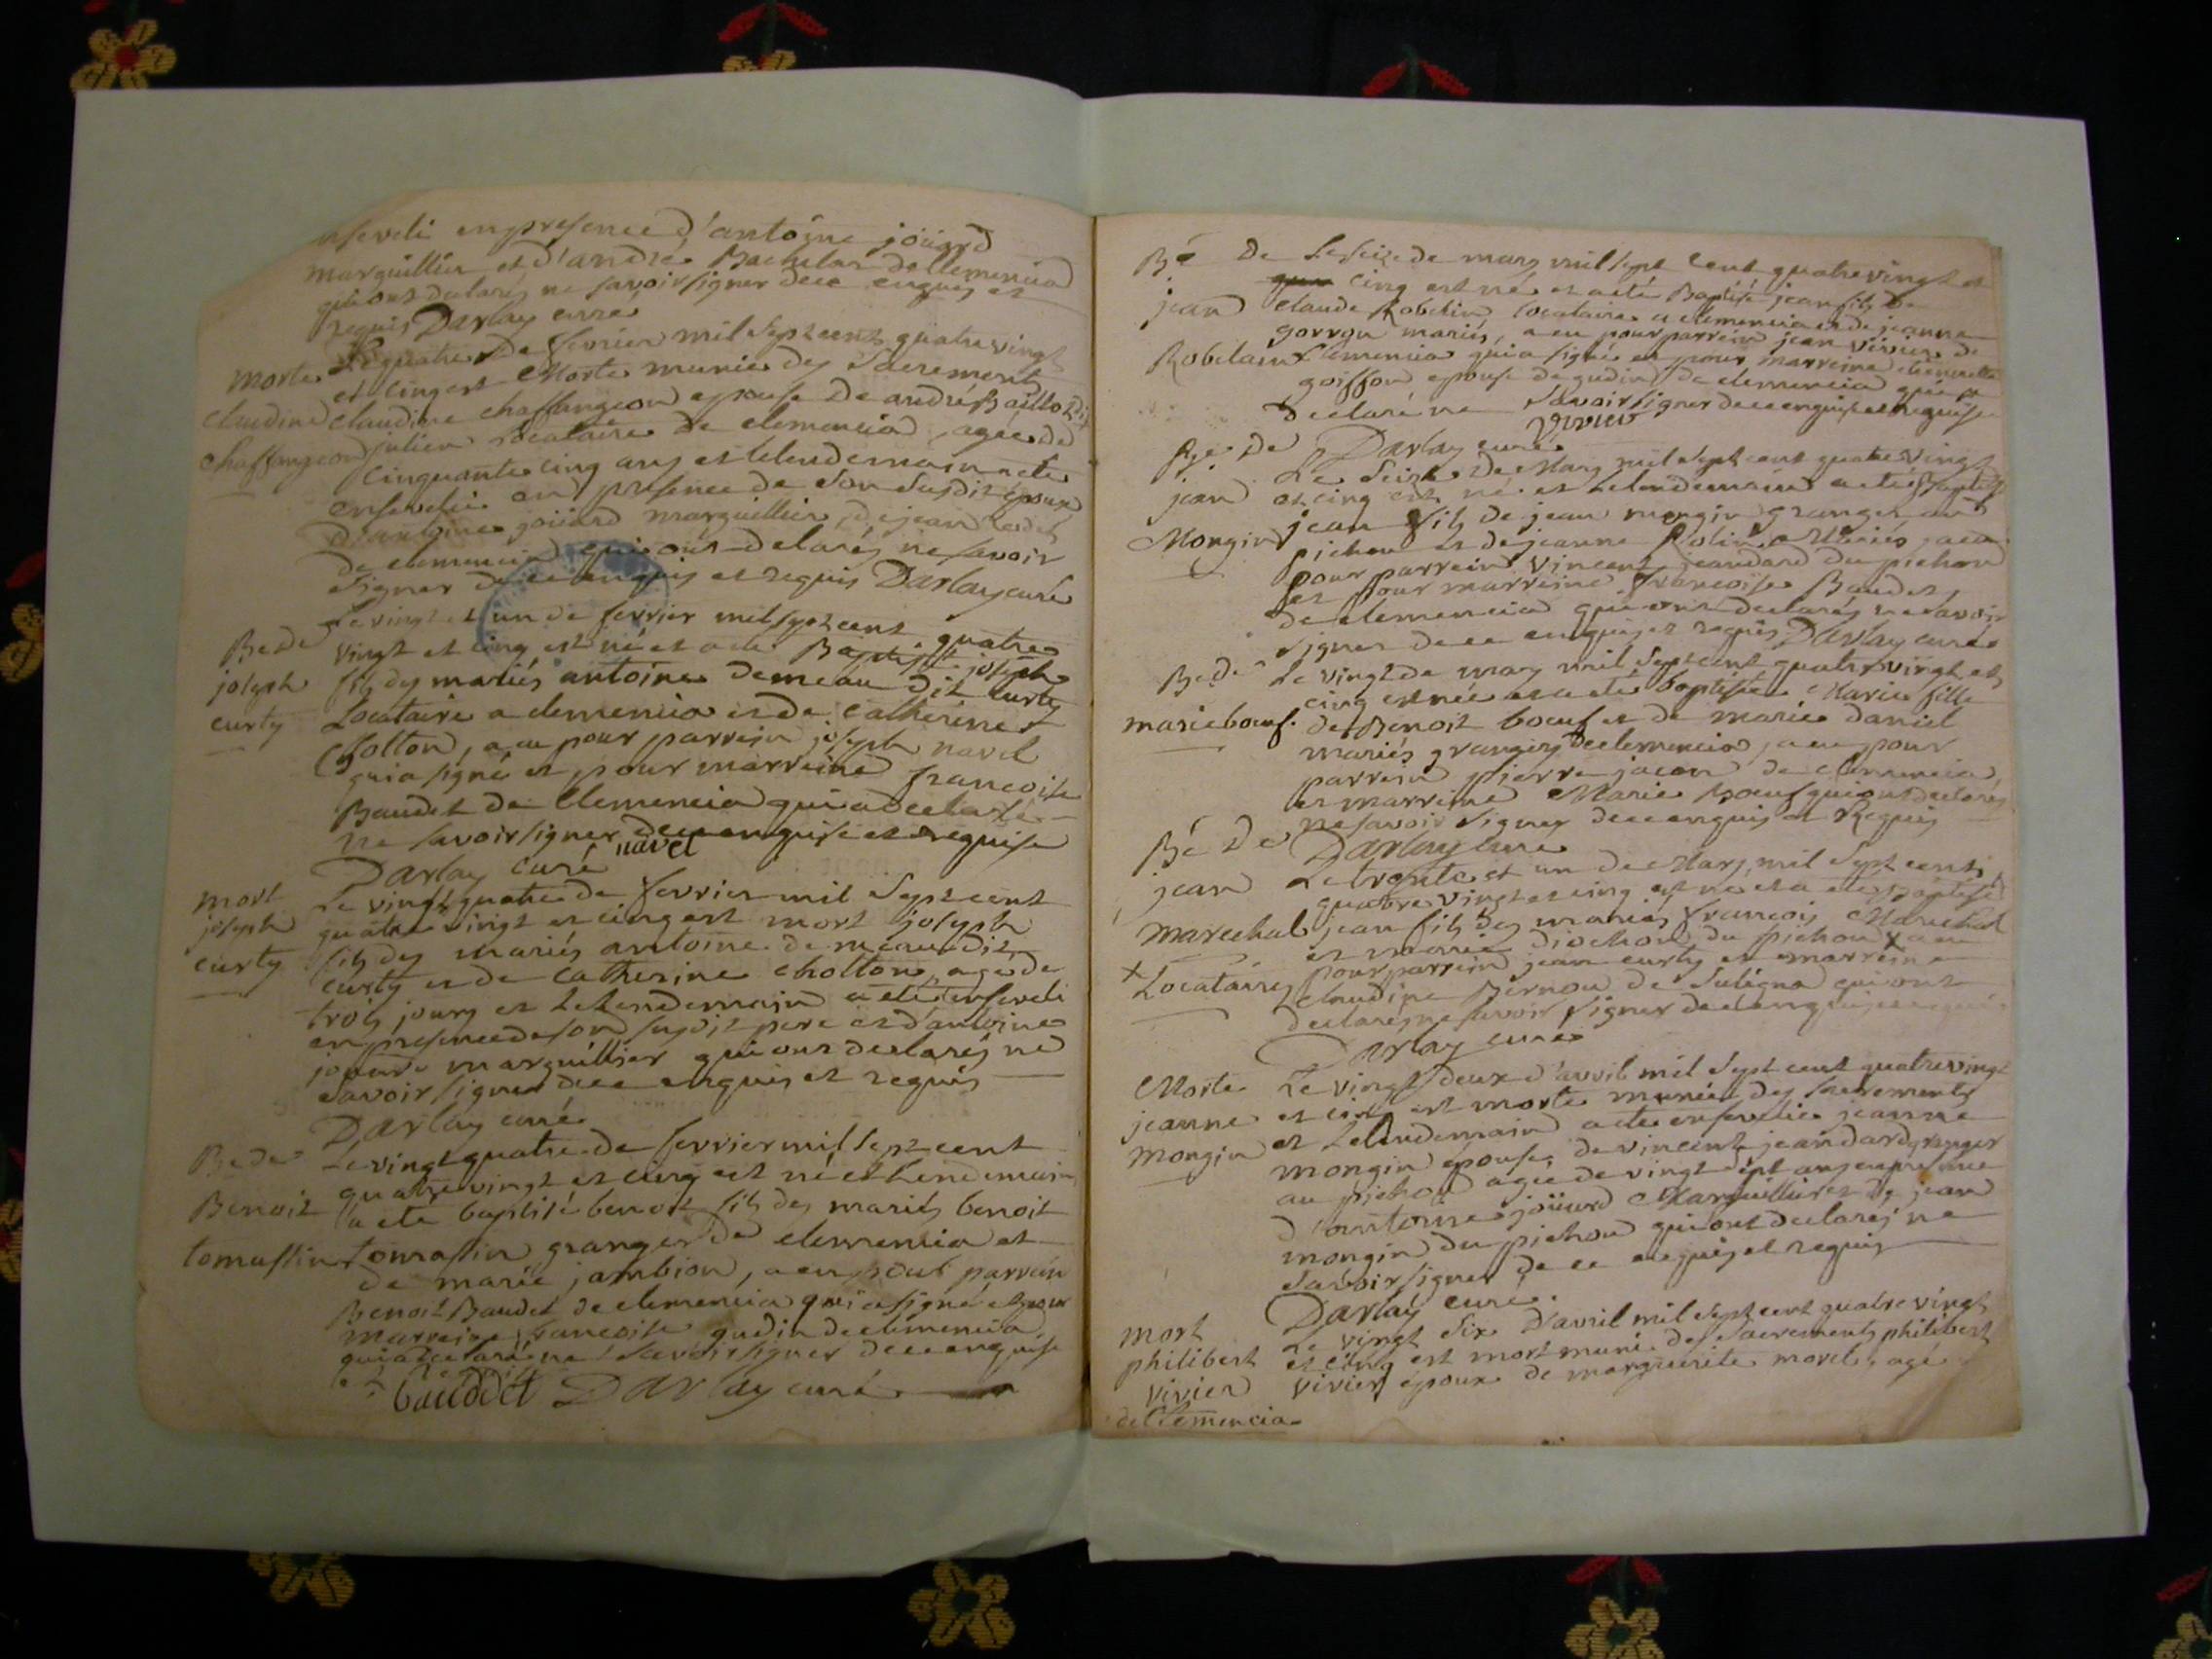 nseveli en presence d'antoine joüard
marguillier et d'andré Bachelar de Clemencia
qui ont declarés ne savoir signer de ce enquis et
requis Darlay curé
morte Le quatre De fevrier mil sept cent quatre vingt
et cinq est Morte munie des Sacrements
claudine claudine chaffangeon epouse De andré Baillo dit
chaffangeon julien Locataire de clemencia, agée de
cinquante cinq ans et le lendemain a ete
ensevelie en presence de son susdit epoux
d'antoine joüard marguillier, de jean
de clemencia qui ont delarés ne savoir
signer de ce enquis et requis Darlay curé
Be De Le vingt et un de fevrier mil sept cent quatre
vingt et cinq est né et a ete Baptisé joseph
joseph fils des mariés antoine demeau dit curty
curty Locataire a clemencia et de Catherine
Cholton, a eu pour parrein joseph navel
qui a signé et pour marreine francoise
Baudet de Clemencia qui a declaré
ne savoir signer de ce enquise et requise
Darlay curé navel
mort Le vingt quatre de fevrier mil Sept cent
joseph quatre vingt et cinq est mort joseph
curty fils des mariés antoine de meau dit
curty et de Catherine cholton, age de
trois jours et le lendemain a eté enseveli
en presence de son susdit pere et d'antoine
joüard marguillier qui ont declarés ne
savoir signer de ce enquis et requis
Darlay curé
Be de Le vingt quatre de fevrier mil sept cent
quatre vingt et cinq est né et lendemain
Benoit a ete baptisé benoit fils des mariés benoit
tomassin tomassin granger de clemencia et
de marie jambion, a eu pour parrein
Benoit Baudet de clemencia qui a signé et pour
marreine francoise gudin de clemencia
qui a declaré ne savoir signer de ce enquise
bauddet Darlay curé
Bé De Le seize de mars mil sept cent quatre vingt et
cinq est né et a eté Baptisé jean fils de
jean claude Robelin locataire a clemencia et de jeanne
gorron mariés, a eu pour parrein jean vivier de
Robelain Clemencia qui a signé et pour marreine
goiffon epouse de gudin de clemencia qui a
declaré ne savoir signer de ce enquise et requise
Darlay curé vivier
Be De Le Seize De Mars mil sept cent quatre vingt
jean et cinq est né et le lendemain a eté Baptisé
Mongin jean fils de jean mongin granger au
pichon et de jeanne Rolin Mariés, a eu
pour parrein vincent jeandard du pichon
et pour marreine francoise Baudet
de clemencia qui ont declarés ne savoir
signer de ce enquis et requis Darlay curé
Be De Le vingt de mars mil Sept cent quatre vingt et
cinq est née et a eté baptisée Marie fille
marie boeuf de Benoit boeuf et de marie daniel
mariés grangers de clemencia, a eu pour
parrein pierre jacon de clemencia,
et marreine Marie boeuf qui ont declarés
ne savoir signer de ce enquis et Requis
Bé De Darlay curé
jean Le trente et un de Mars, mil Sept cent
quatre vingt et cinq est né et a eté Baptisé
marechal jean fils des mariés francois Marechal
et marie diochon du pichon x a eu
x Locataires pour parrein jean curty et marreine
claudine Bernou de Suligna qui ont
declarés ne savoir signer de ce enquis et requis
Darlay curé
Morte Le vingt deux d'avril mil Sept cent quatre vingt
jeanne et cinq est morte munie des sacrements
mongin et le lendemain a ete ensevelie jeanne
mongin epouse de vincent jeandard granger
au pichon agée de vingt sept ans en presence
d'antoine joüard Marguillier et de jean
mongin du pichon qui ont declarés ne
savoir signer de ce enquis et requis
Darlay curé.
mort Le vingt Six D'avril mil sept cent quatre vingt
philibert et cinq est mort muni des Sacrements philibert
vivier vivier epoux de marguerite morel, agé
de Clemencia